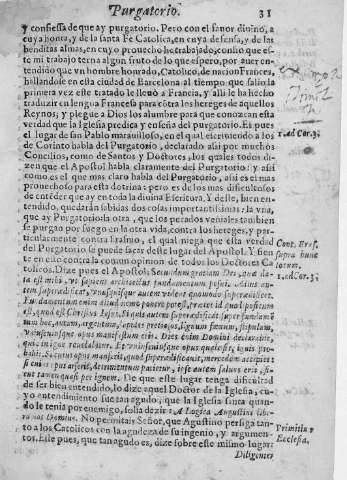 Purgatorio. 31
y confiessa de que ay purgatorio. Pero con el fauor diuino, a
cuya honra, y de la santa Fe Catolica, en cuya defensa, y de las
benditas almas, en cuyo prouecho he trabajado, confio que es-
te mi trabajo terna algun fruto de lo que espero, por auer en-
tendido que vn hombre honrado, Catolico, de nacion Frances,
hallandose en esta ciudad de Barcelona al tiempo que salio la
primera vez este tratado le lleuò a Francia, y alli le ha hecho
traduzir en lengua Francesa para cõtra los hereges de aquellos
Reynos, y plegue a Dios los alumbre para que conozcan esta
verdad que la Iglesia predica y enseña del purgatorio. Es pues
el lugar de san Pablo marauilloso, en el qual escriuiendo a los
de Corinto habla del Purgatorio, declarado assi por muchos
Concilios, como de Santos y Doctores, los quales todos di-
zen que el Apostol habla claramente del Purgatorio: y assi
como es el que mas claro habla del Purgatorio, assi es el mas
prouechoso para esta dotrina: pero es de los mas dificultosos
de entẽder que ay en toda la diuina Escritura. Y deste, bien en-
tendido, quedarán sabidas dos cosas importantissimas: la vna,
que ay Purgatorio: la otra, que los pecados veniales tambien
se purgan por fuego en la otra vida, contra los hereges, y par-
ticularmente contra Erasmo, el qual niega que esta verdad
del Purgatorio se puede sacar deste lugar del Apostol. Y sien-
te en esto contra la comun opinion de todos los Doctores Ca
tolicos. Dize pues el Apostol: Secundum gratiam Dei, quæ da-
ta est mihi, vt sapiens architectus fundamentum posui. Alius au-
tem superædificat, vnusquisque autem videat quomodo superædificet.
Fundamentum enim aliud nemo potest ponere, præter id quod positum
est, quod est Christus Iesus. Si quis autem superædificat super fundamẽ
tum hoc, aurum, argentum, lapides pretiosos, lignum, fœnum, stipulam,
vniuscuiusque opus manifestum erit. Dies enim Domini declarabit,
quia in igne reuelabitur. Et vniuscuiusque opus quale sit, ignis pro-
babit. Si cuius opus manserit, quod superædificauit, mercedem accipiet:
si cuius opus arserit, detrimentum patietur, ipse autem saluus erit, sic
tamen quasi per ignem. De que este lugar tenga dificultad
de ser bien entendido, lo dize aquel Doctor de la Iglesia, cu-
yo entendimiento fue tan agudo, que la Iglesia santa quan-
do le tenia por enemigo, solia dezir: A Logica Augustini libe-
ra nos Domine. No permitais Señor, que Augustino persiga tan-
to a los Catolicos con la agudeza de su ingenio, y argumen-
tos. Este pues, que tan agudo es, dize sobre este mismo lugar:
Diligenter
1. ad Cor. 3.
Cont. Eras.
supra hunc
locum.
1. ad Cor. 3.
Primitiu.
Ecclesia.